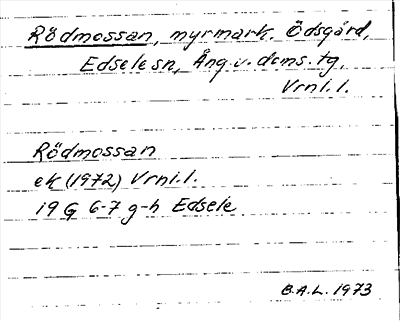 Rödmossan, myrmark. Ödsgård,
Edsele sn, Ång. v. dcms. tg.
Vrnl. l.
Rödmossan
ek (1972) Vrnl. l.
19 G 6-7 g-h Edsele
B.A.L. 1973